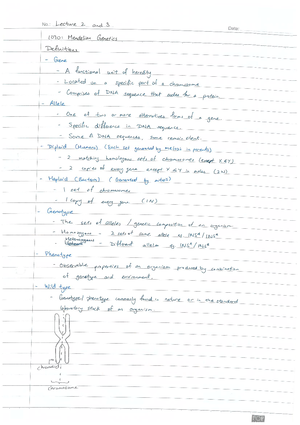 No: Lecture 2 and 3
Date:
LO10: Mendelian Genetics
Definitions
- Gene
- A functional unit of heredity
- Located on a specific part of a chromosome
- Comprises of DNA sequence that codes for a protein
- Allele
- One of two or more alternative forms of a gene
- Specific difference in DNA sequence
- Some DNA sequences, some
- Diploid (Humans) (Each set generated by meiosis in parents)
- 2 matching homologous sets of chromosomes (except X & Y)
- 2 copies of every gene except X & Y in males (2N)
- Haploid (Bacteria) (Generated by mitosis)
- 1 set of chromosomes
- 1 copy of every gene (1N)
- Genotype
- The sets of alleles / genetic composition of an organism
- Homozygous - 2 of same allele eg
- Different alleles eg
- Phenotype
- Observable properties of an organism produced by combination
of genotype and environment
- Wild type
- Genotype/phenotype commonly found in nature or is the standard
laboratory stock of an organism
chromatid
Chromosome